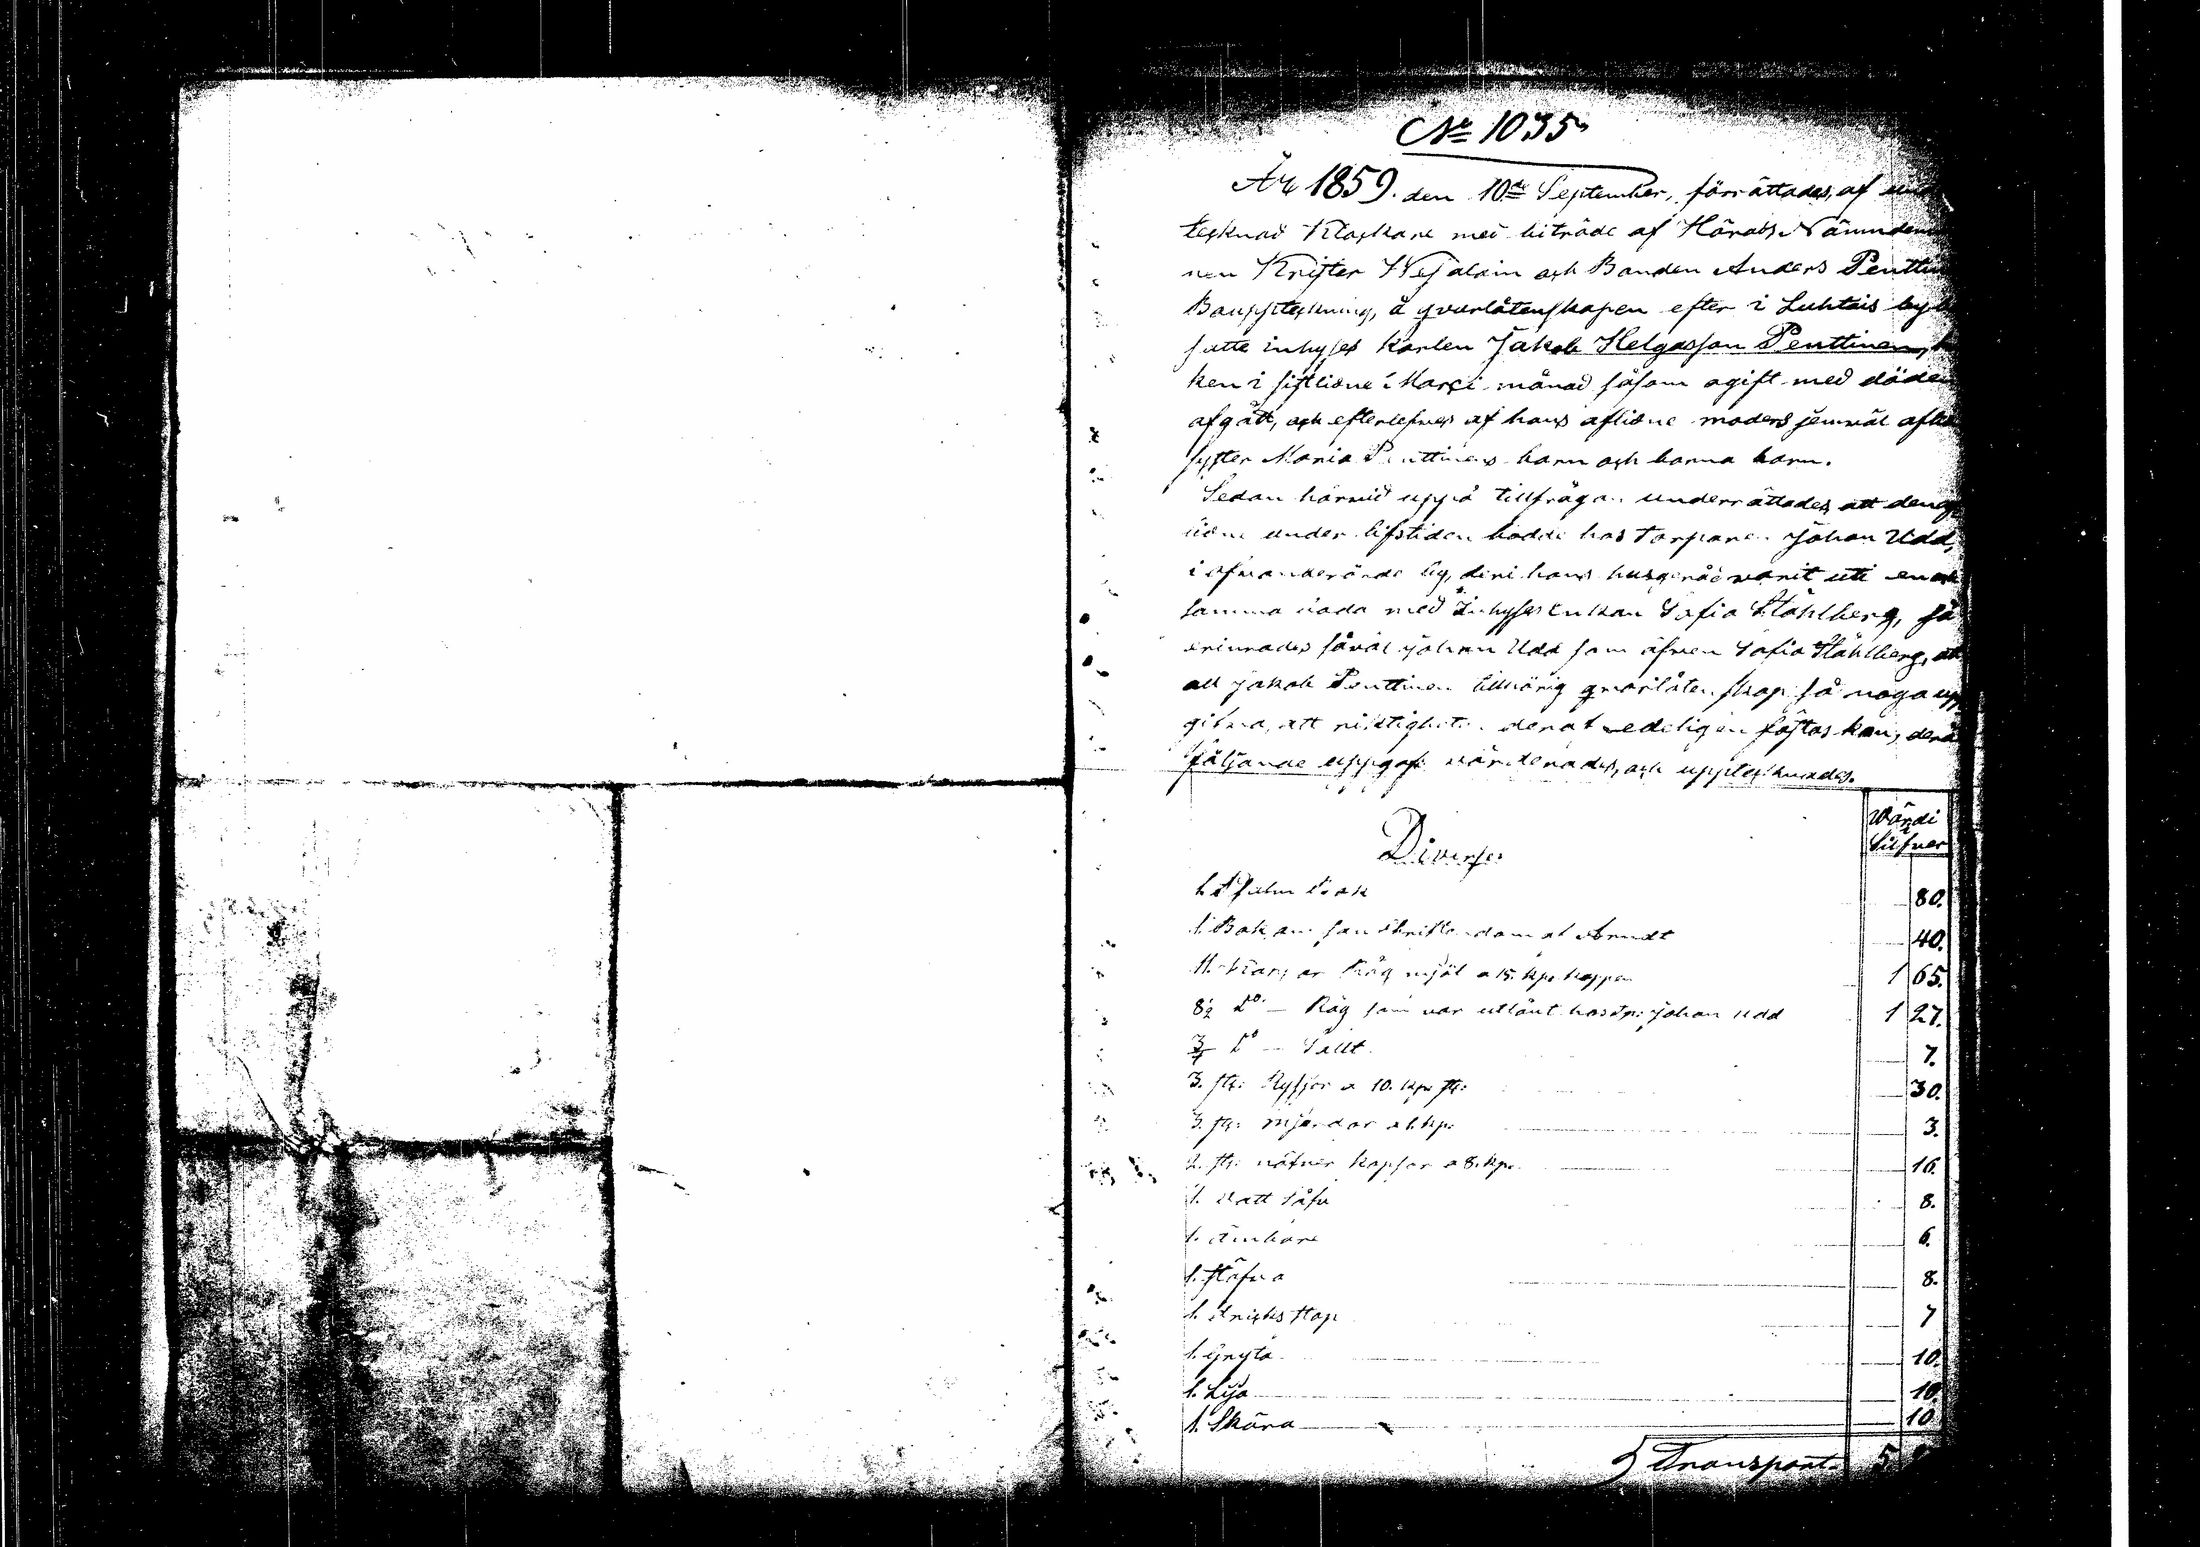 No 1035
År 1859. den 10de September, förrättades, af und
tecknad Klockare med biträde af Härads Nämndem
nen Krister Wejalain och Bonden Anders Penttin
Bouppteckning, å qvarlåtenskapen efter i Luhtais by b
satte inhyses karlen Jakob Helgasson Penttinen,
ken i sistlidne Marci månad såsom ogift med döden
afgått, och efterlefves af hans aflidne moders jemväl aflid
syster Maria Penttinens barn och barna barn.
Sedan härvid uppå tillfrågan underrättades, att den af
lidne under lifstiden bodde hos Torparen Johan Udd,
i ofvanberörde by, deri hans husgeråd varit uti en och
samma boda med Inhyses enkan Sofia Ståhlberg, så
erinrades såväl Johan Udd som äfven Sofia Ståhlberg, att
all Jakob Penttinen tillhörig qvarlåtenskap så noga upp
gifva, att riktigheten deraf edeligen fästas kan, derå
följande uppgaf: värderades, och upptecknades.
Wärdi
i
Silfver
Diverse:
1. Psalm bok 80.
1. Bok om san Christendom af Arndt 40.
11. Kappar Råg mjöl a 15. kpr kappen 1 65.
8½ Do — Råg som var utlånt hos Tp: Johan Udd 1 27.
¾ Do — Sallt 7.
3. st: Ryssjor a 10. kpr st: 30.
3. st: mjerdar a 1. kpr 3.
2. st: näfver kopsor a 8. kpr 16.
1. vatt såfu 8.
1. Ämbare 6.
1. Stäfva 8.
1. dricks stop 7
1. Gryta 10.
1. Lija 10.
1. Skära 10
Transport. 5